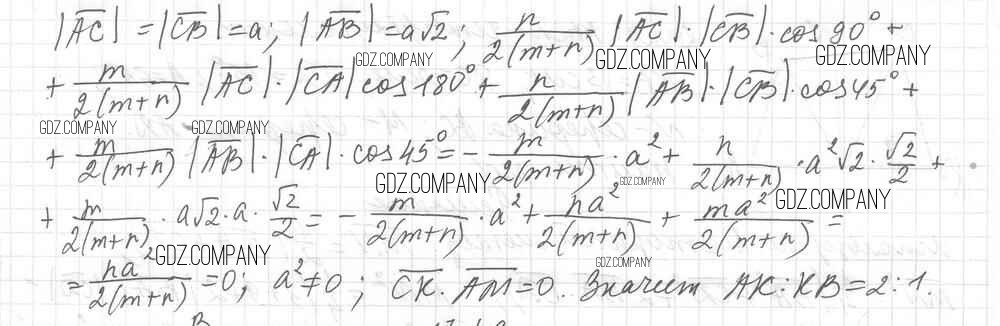 |AC̅| = |CB̅| = a; |AB̅| = a√2; n/2(m+n) |AC̅|·|CB̅|·cos 90° +
GDZ.COMPANY GDZ.COMPANY GDZ.COMPANY
+ m/2(m+n) |AC̅|·|CA̅| cos 180° + n/2(m+n) |AB̅|·|CB̅|·cos 45° +
GDZ.COMPANY GDZ.COMPANY
+ m/2(m+n) |AB̅|·|CA̅|·cos 45° = - m/2(m+n) · a² + n/2(m+n) · a²√2 · √2/2 +
GDZ.COMPANY GDZ.COMPANY GDZ.COMPANY
+ m/2(m+n) · a√2 · a · √2/2 = - m/2(m+n) · a² + na²/2(m+n) + ma²/2(m+n) =
GDZ.COMPANY GDZ.COMPANY
= na²/2(m+n) = 0; a² ≠ 0; CK̅ · AM̅ = 0. Значит AK : KB = 2 : 1.
B